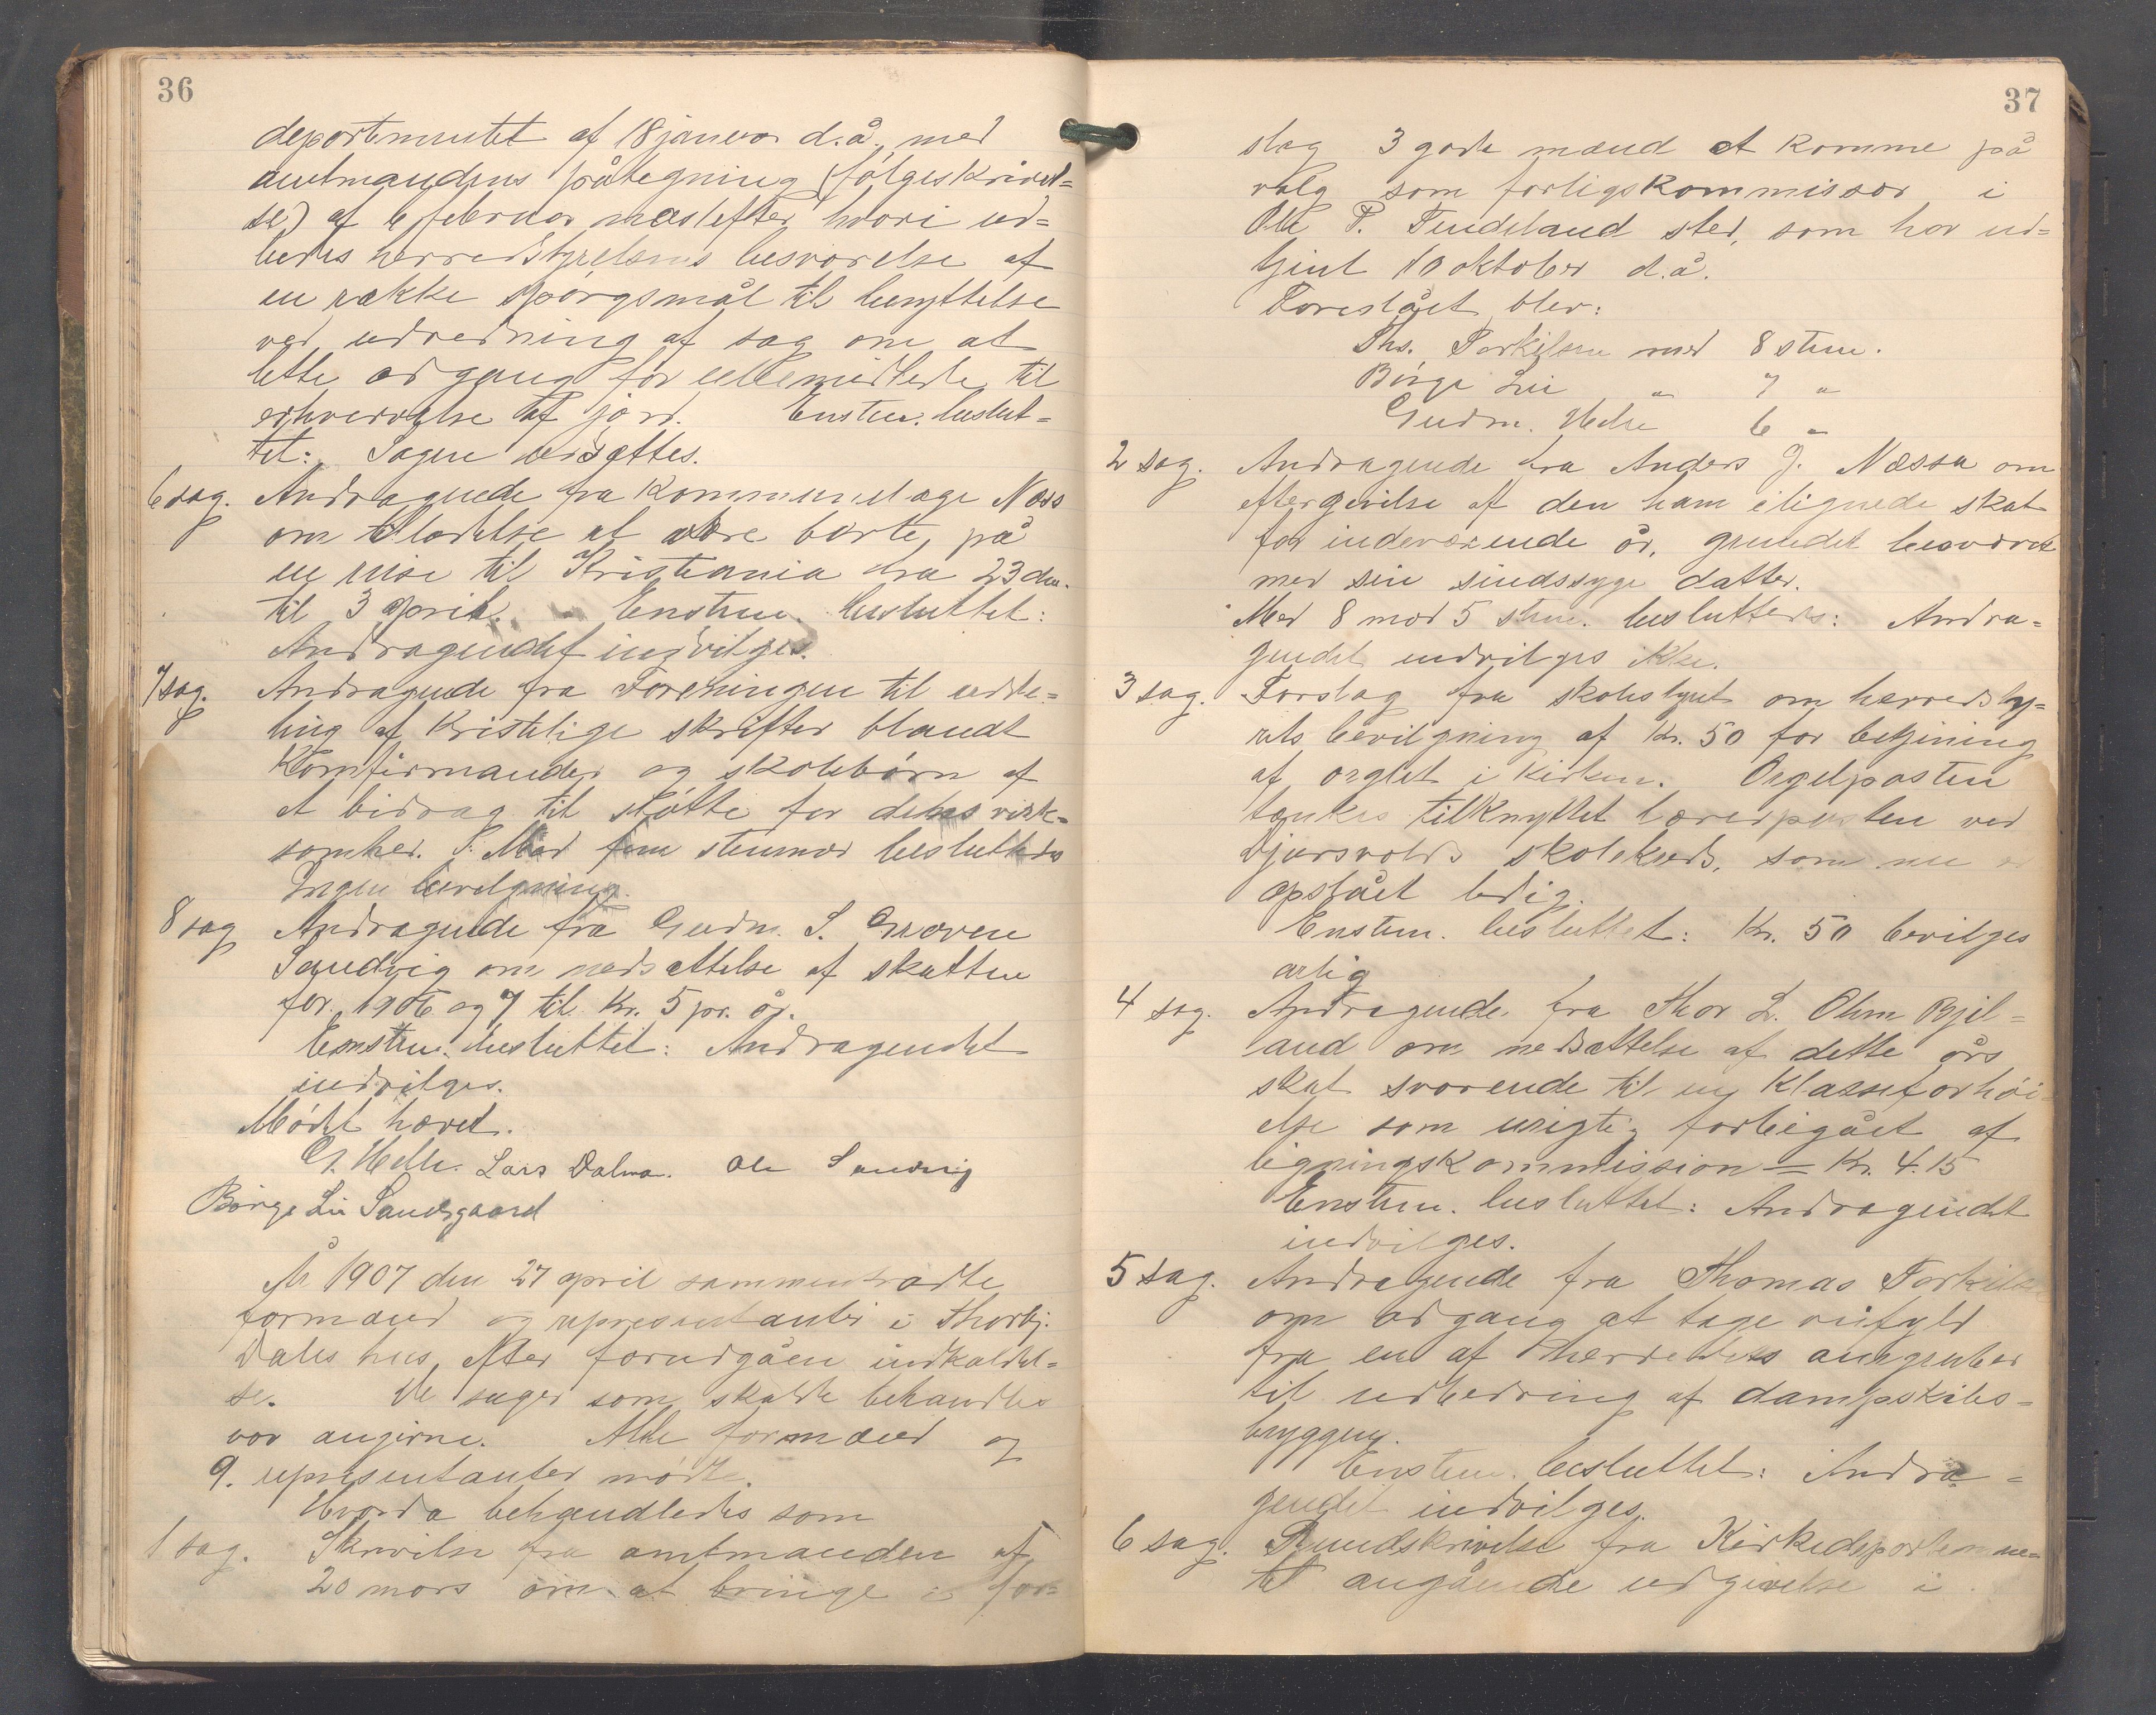 36
departementet af 18 januar d.å. med
amtmandens påtegning (følgeskrivel=
se) af 6 februar næstefter hvori ud=
bedes herredstyrelsens besvarelse af
en række spørgsmål til benyttelse
ved udredning af sag om at
lette adgang for ubemidlede til
erhvervelse af jord. Enstem. beslut=
tet: Sagen udsættes.
6 sag. Andragende fra Kommunelæge Næss
om tilladelse at være borte, på
en reise til Kristiania fra 23 dm.
til 3 april. - Enstem. besluttet:
Andragendet indvilges.
7 sag. Andragende fra Foreningen til udde=
ling af kristelige skrifter blandt
Komfirmander og skolebørn af
et bidrag til støtte for dens virk=
somhed. Med fem stemmer besluttedes
Ingen bevilgning.
8 sag Andragende fra Gudm. S. Græven
Sandvig om nedsættelse af skatten
for 1906 og 7 til Kr. 5 pr. år.
Enstem. besluttet: Andragendet
indvilges.
Mødet hævet.
G. Helle. Lars Dalva. Ole Sandvig
Børge Lie Sandsgaard
År 1907 den 27 april sammentrådte
formænd og repræsentanter i Thorbj.
Dales hus, efter forudgåen indkaldel=
se. De sager som skulde behandles
var angivne. Alle formænd og
9. repræsentanter mødte.
Hvorda behandledes som
1 sag. Skrivelse fra amtmanden af
20 mars om at bringe i for=
37
slag 3 gode mænd at komme på
valg som forligskommissær i
Ole P. Tendeland sted, som har ud=
tjent 10 oktober d.å.
Foreslået blev:
Ths. Torkilsen med 8 stem.
Børge Lie " 7 "
Gudm. Helle 6 "
2 sag. Andragende fra Anders J. Næssa om
eftergivelse af den ham ilignede skat
for indeværende år, grundet besværet
med sin sindssyge datter.
Med 8 mod 5 stem. besluttedes: Andra=
gendet indvilges ikke.
3 sag. Forslag fra skolestyret om herredsty=
rets bevilgning af Kr. 50 for betjening
af orglet i kirken. Orgelposten
tænkes tilknyttet lærerposten ved
Djursvolds skolekreds, som nu er
opstået ledig.
Enstem. besluttet: Kr. 50 bevilges
årlig
4 sag. Andragende fra Thor L. Ohm Bjel=
land om nedsættelse af dette års
skat svarende til en Klasseforhøi=
else som urigtig forbigået af
ligningskommission = Kr. 4.15
Enstem. besluttet: Andragendet
indvilges.
5 sag. Andragende fra Thomas Torkilsen
om adgang at tage veifyld
fra en af herredets angruber
til udbedring af dampskibs=
bryggen.
Enstem. besluttet: Andra=
gendet indvilges.
6 sag. Rundskrivelse fra Kirkedepartemen=
tet angående udgivelse i